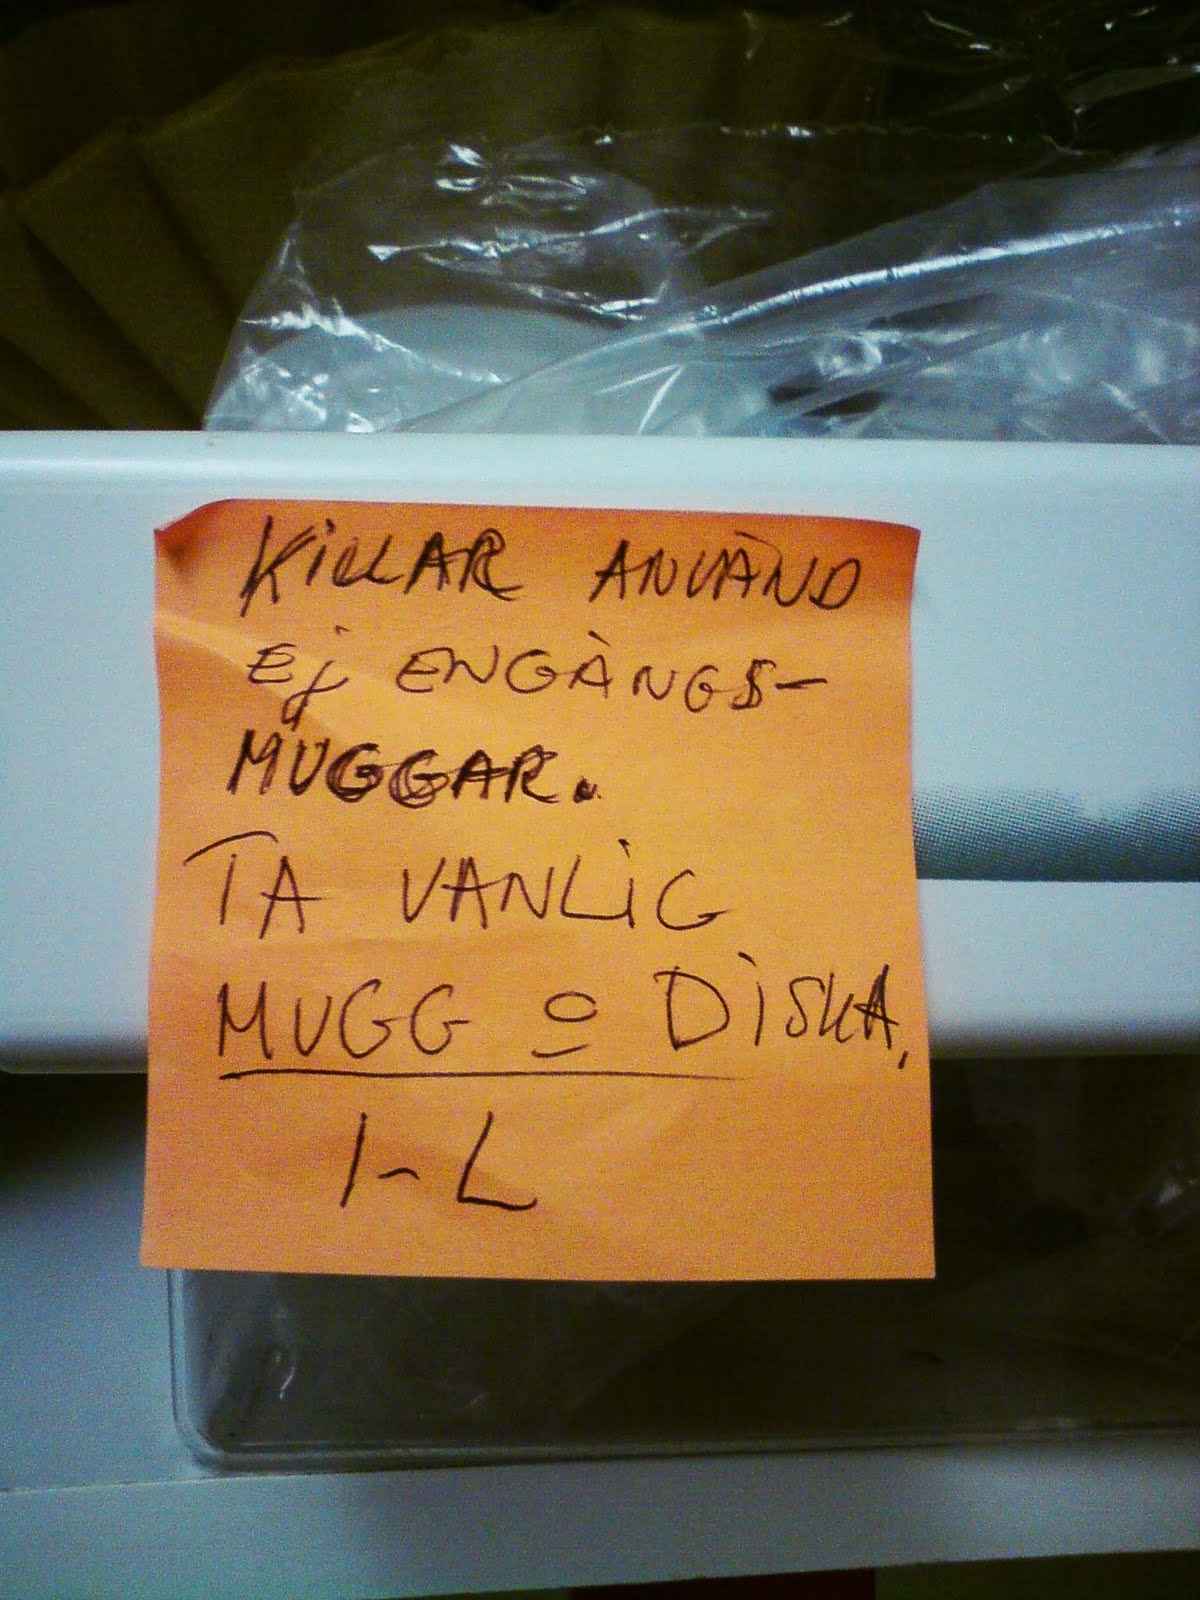 KiLLAR ANVÄND
Ej ENGÅNGS-
MUGGAR.
TA VANLiG
MUGG o DiSKA,
I-L